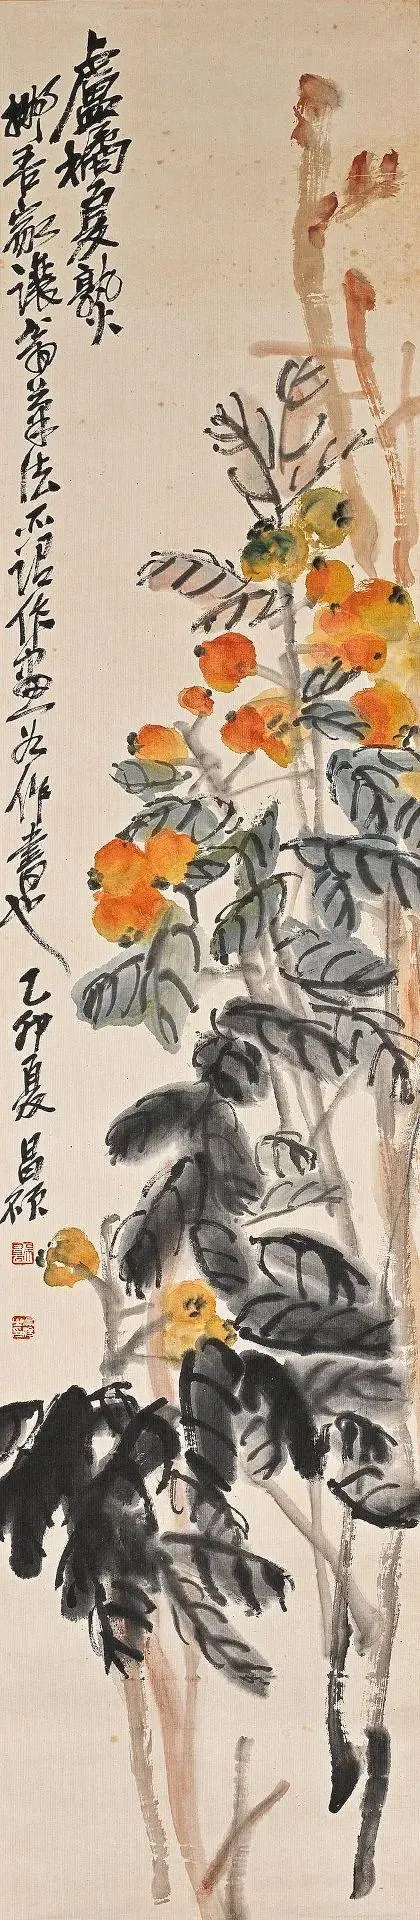 盧橘夏熟
吾家讓翁筆法所謂作畫如作書也 乙卯夏 昌碩